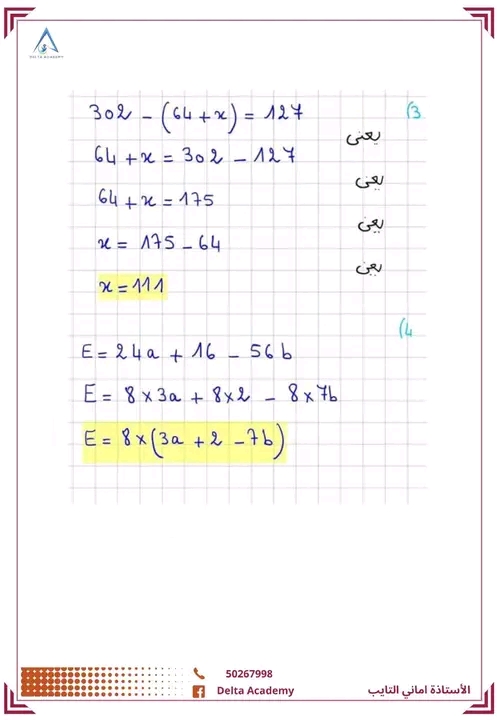 DELTA ACADEMY
3)
302 - (64 + x) = 127
يعني
64 + x = 302 - 127
يعني
64 + x = 175
يعني
x = 175 - 64
يعني
x = 111
4)
E = 24a + 16 - 56b
E = 8 × 3a + 8 × 2 - 8 × 7b
E = 8 × (3a + 2 - 7b)
50267998
Delta Academy
الأستاذة اماني التايب